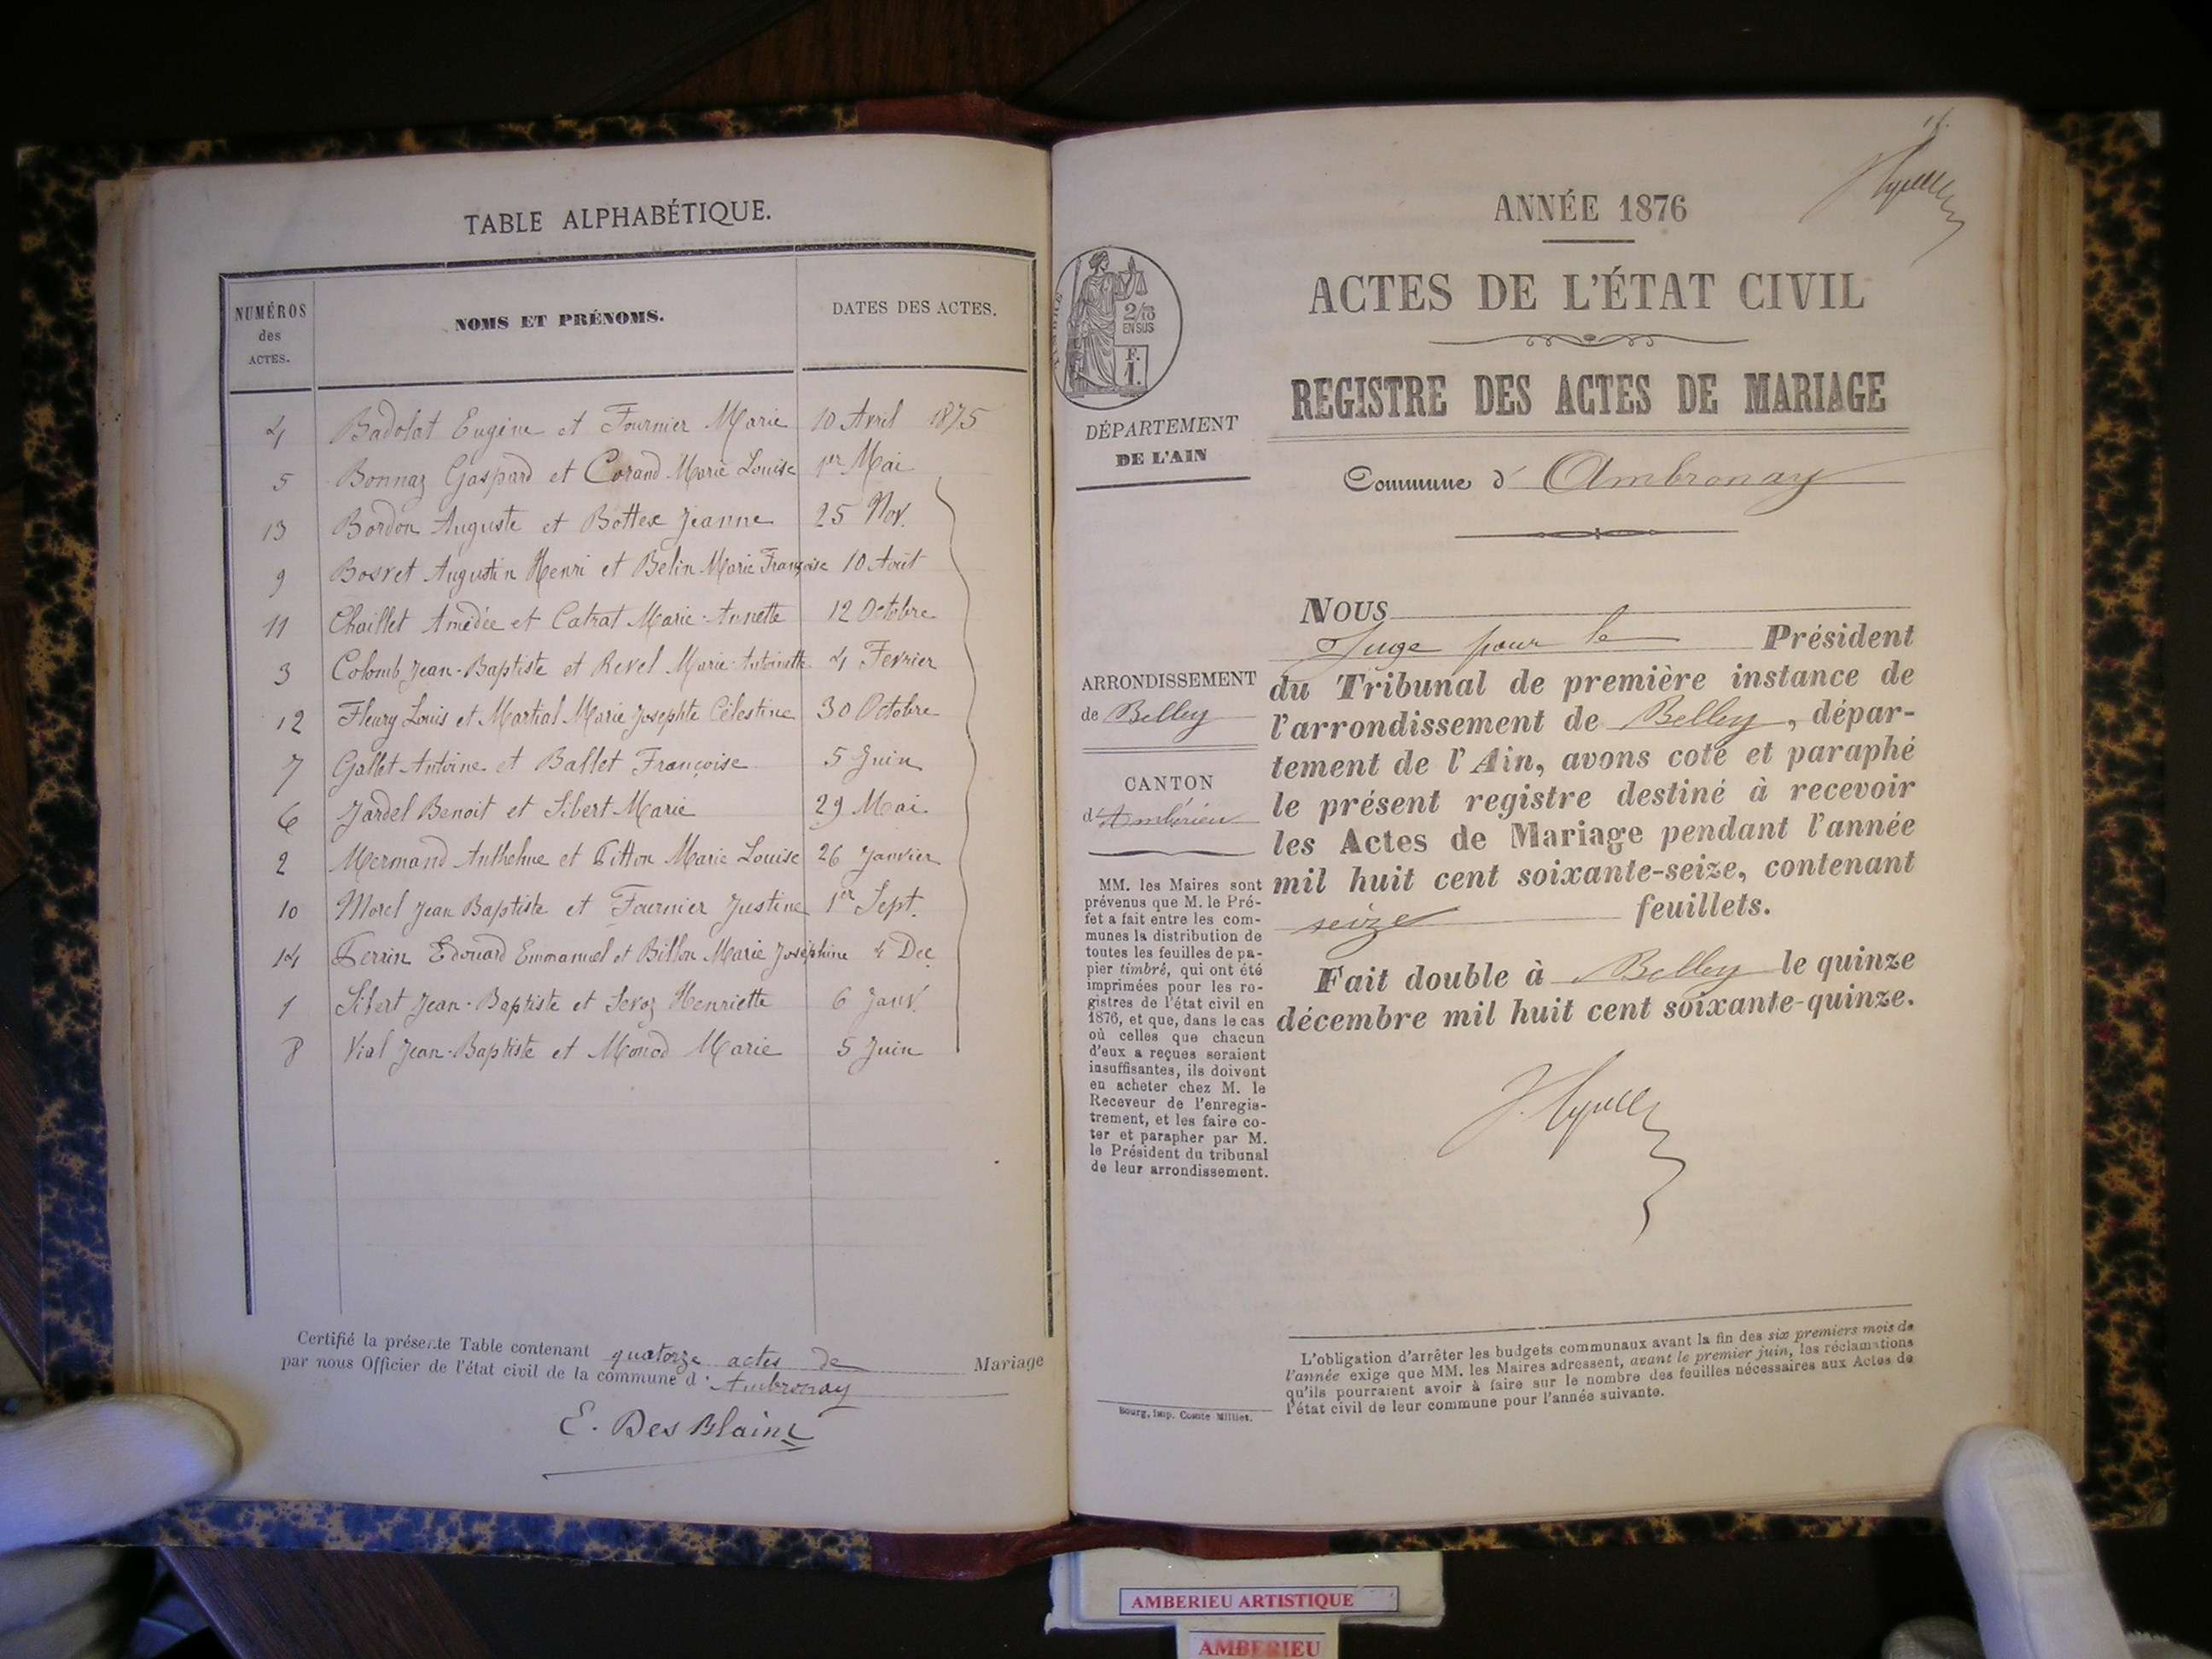 TABLE ALPHABÉTIQUE.
NUMÉROS
des
ACTES.
NOMS ET PRÉNOMS.
DATES DES ACTES.
4 Badolat Eugène et Fournier Marie 10 Avril 1875
5 Bonnaz Gaspard et Corand Marie Louise 1er Mai
13 Bordon Auguste et Bottex Jeanne 25 Nov.
9 Bosret Augustin Henri et Belin Marie Françoise 10 Août
11 Chaillet Amédée et Catrat Marie-Annette 12 Octobre
3 Colomb Jean-Baptiste et Revel Marie-Antoinette 4 Fevrier
12 Fleury Louis et Martial Marie Josephte Célestine 30 Octobre
7 Gallet Antoine et Ballet Françoise 5 Juin
6 Jardel Benoit et Sibert Marie 29 Mai
2 Mermand Anthelme et Pitton Marie Louise 26 Janvier
10 Morel Jean Baptiste et Fournier Justine 1er Sept.
14 Perrin Edouard Emmanuel et Billon Marie Joséphine 4 Dec.
1 Sibert Jean-Baptiste et Servoz Henriette 6 Janv.
8 Vial Jean-Baptiste et Monod Marie 5 Juin
Certifié la présente Table contenant quatorze actes de Mariage
par nous Officier de l'état civil de la commune d'Ambronay
E. Des Blains
ANNÉE 1876
ACTES DE L'ÉTAT CIVIL
REGISTRE DES ACTES DE MARIAGE
2/10
EN SUS
F.
1.
DÉPARTEMENT
DE L'AIN
Commune d'Ambronay
ARRONDISSEMENT
de Belley
CANTON
d'Ambérieu
MM. les Maires sont
prévenus que M. le Pré-
fet a fait entre les com-
munes la distribution de
toutes les feuilles de pa-
pier timbré, qui ont été
imprimées pour les re-
gistres de l'état civil en
1876, et que, dans le cas
où celles que chacun
d'eux a reçues seraient
insuffisantes, ils doivent
en acheter chez M. le
Receveur de l'enregis-
trement, et les faire co-
ter et parapher par M.
le Président du tribunal
de leur arrondissement.
NOUS
Juge pour le Président
du Tribunal de première instance de
l'arrondissement de Belley, dépar-
tement de l'Ain, avons coté et paraphé
le présent registre destiné à recevoir
les Actes de Mariage pendant l'année
mil huit cent soixante-seize, contenant
seize feuillets.
Fait double à Belley le quinze
décembre mil huit cent soixante-quinze.
L'obligation d'arrêter les budgets communaux avant la fin des six premiers mois de
l'année exige que MM. les Maires adressent, avant le premier juin, les réclamations
qu'ils pourraient avoir à faire sur le nombre des feuilles nécessaires aux Actes de
l'état civil de leur commune pour l'année suivante.
Bourg, Imp. Comte Milliet.
AMBERIEU ARTISTIQUE
AMBERIEU